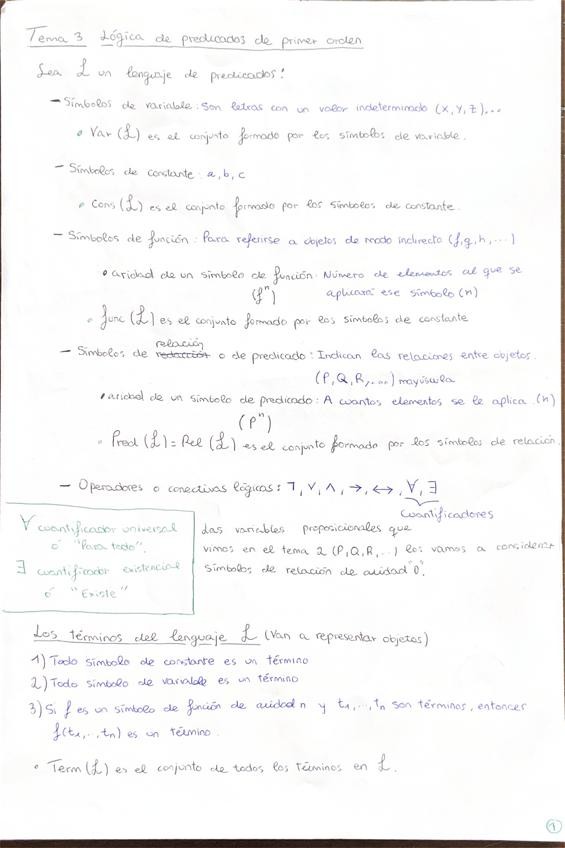 Tema 3 Lógica de predicados de primer orden
Sea ℒ un lenguaje de predicados:
- Símbolos de variable: Son letras con un valor indeterminado (x, y, z)...
• Var (ℒ) es el conjunto formado por los símbolos de variable.
- Símbolos de constante: a, b, c
• Cons (ℒ) es el conjunto formado por los símbolos de constante.
- Símbolos de función: Para referirse a objetos de modo indirecto (f, g, h, ...)
• aridad de un símbolo de función. Número de elementos al que se
(fⁿ) aplicará ese símbolo (n)
• func (ℒ) es el conjunto formado por los símbolos de constante
relación
- Símbolos de redacción o de predicado: Indican las relaciones entre objetos.
(P, Q, R, ...) mayúscula
• aridad de un símbolo de predicado: A cuantos elementos se le aplica (n)
(Pⁿ)
• Pred (ℒ) = Rel (ℒ) es el conjunto formado por los símbolos de relación.
- Operadores o conectivas lógicas: ¬, ∨, ∧, →, ↔, ∀, ∃
cuantificadores
∀ cuantificador universal
ó "Para todo".
∃ cuantificador existencial
ó "Existe"
Las variables proposicionales que
vimos en el tema 2 (P, Q, R, ..) los vamos a considerar
símbolos de relación de aridad "0".
Los términos del lenguaje ℒ (Van a representar objetos)
1) Todo símbolo de constante es un término
2) Todo símbolo de variable es un término
3) Si f es un símbolo de función de aridad n y t₁, .., tₙ son términos, entonces
f(t₁, .., tₙ) es un término.
• Term (ℒ) es el conjunto de todos los términos en ℒ.
1